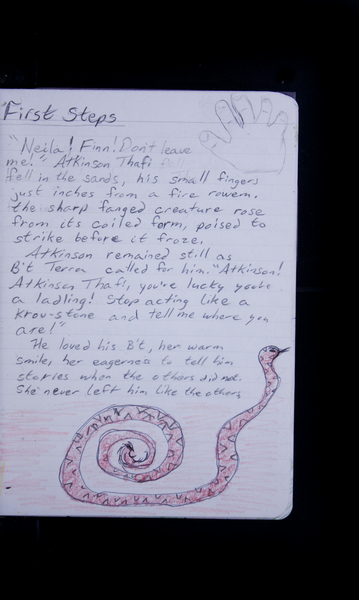 First Steps
"Neila! Finn! Don't leave
me!" Atkinson Thafi fell
fell in the sands, his small fingers
just inches from a fire rowem.
the sharp fanged creature rose
from its coiled form, poised to
strike before it froze.
Atkinson remained still as
B't Terra called for him. "Atkinson!
Atkinson Thafi, you're lucky you're
a ladling! Stop acting like a
krou-stone and tell me where you
are!"
He loved his B't, her warm
smile, her eagerness to tell him
stories when the others did not.
She never left him like the others